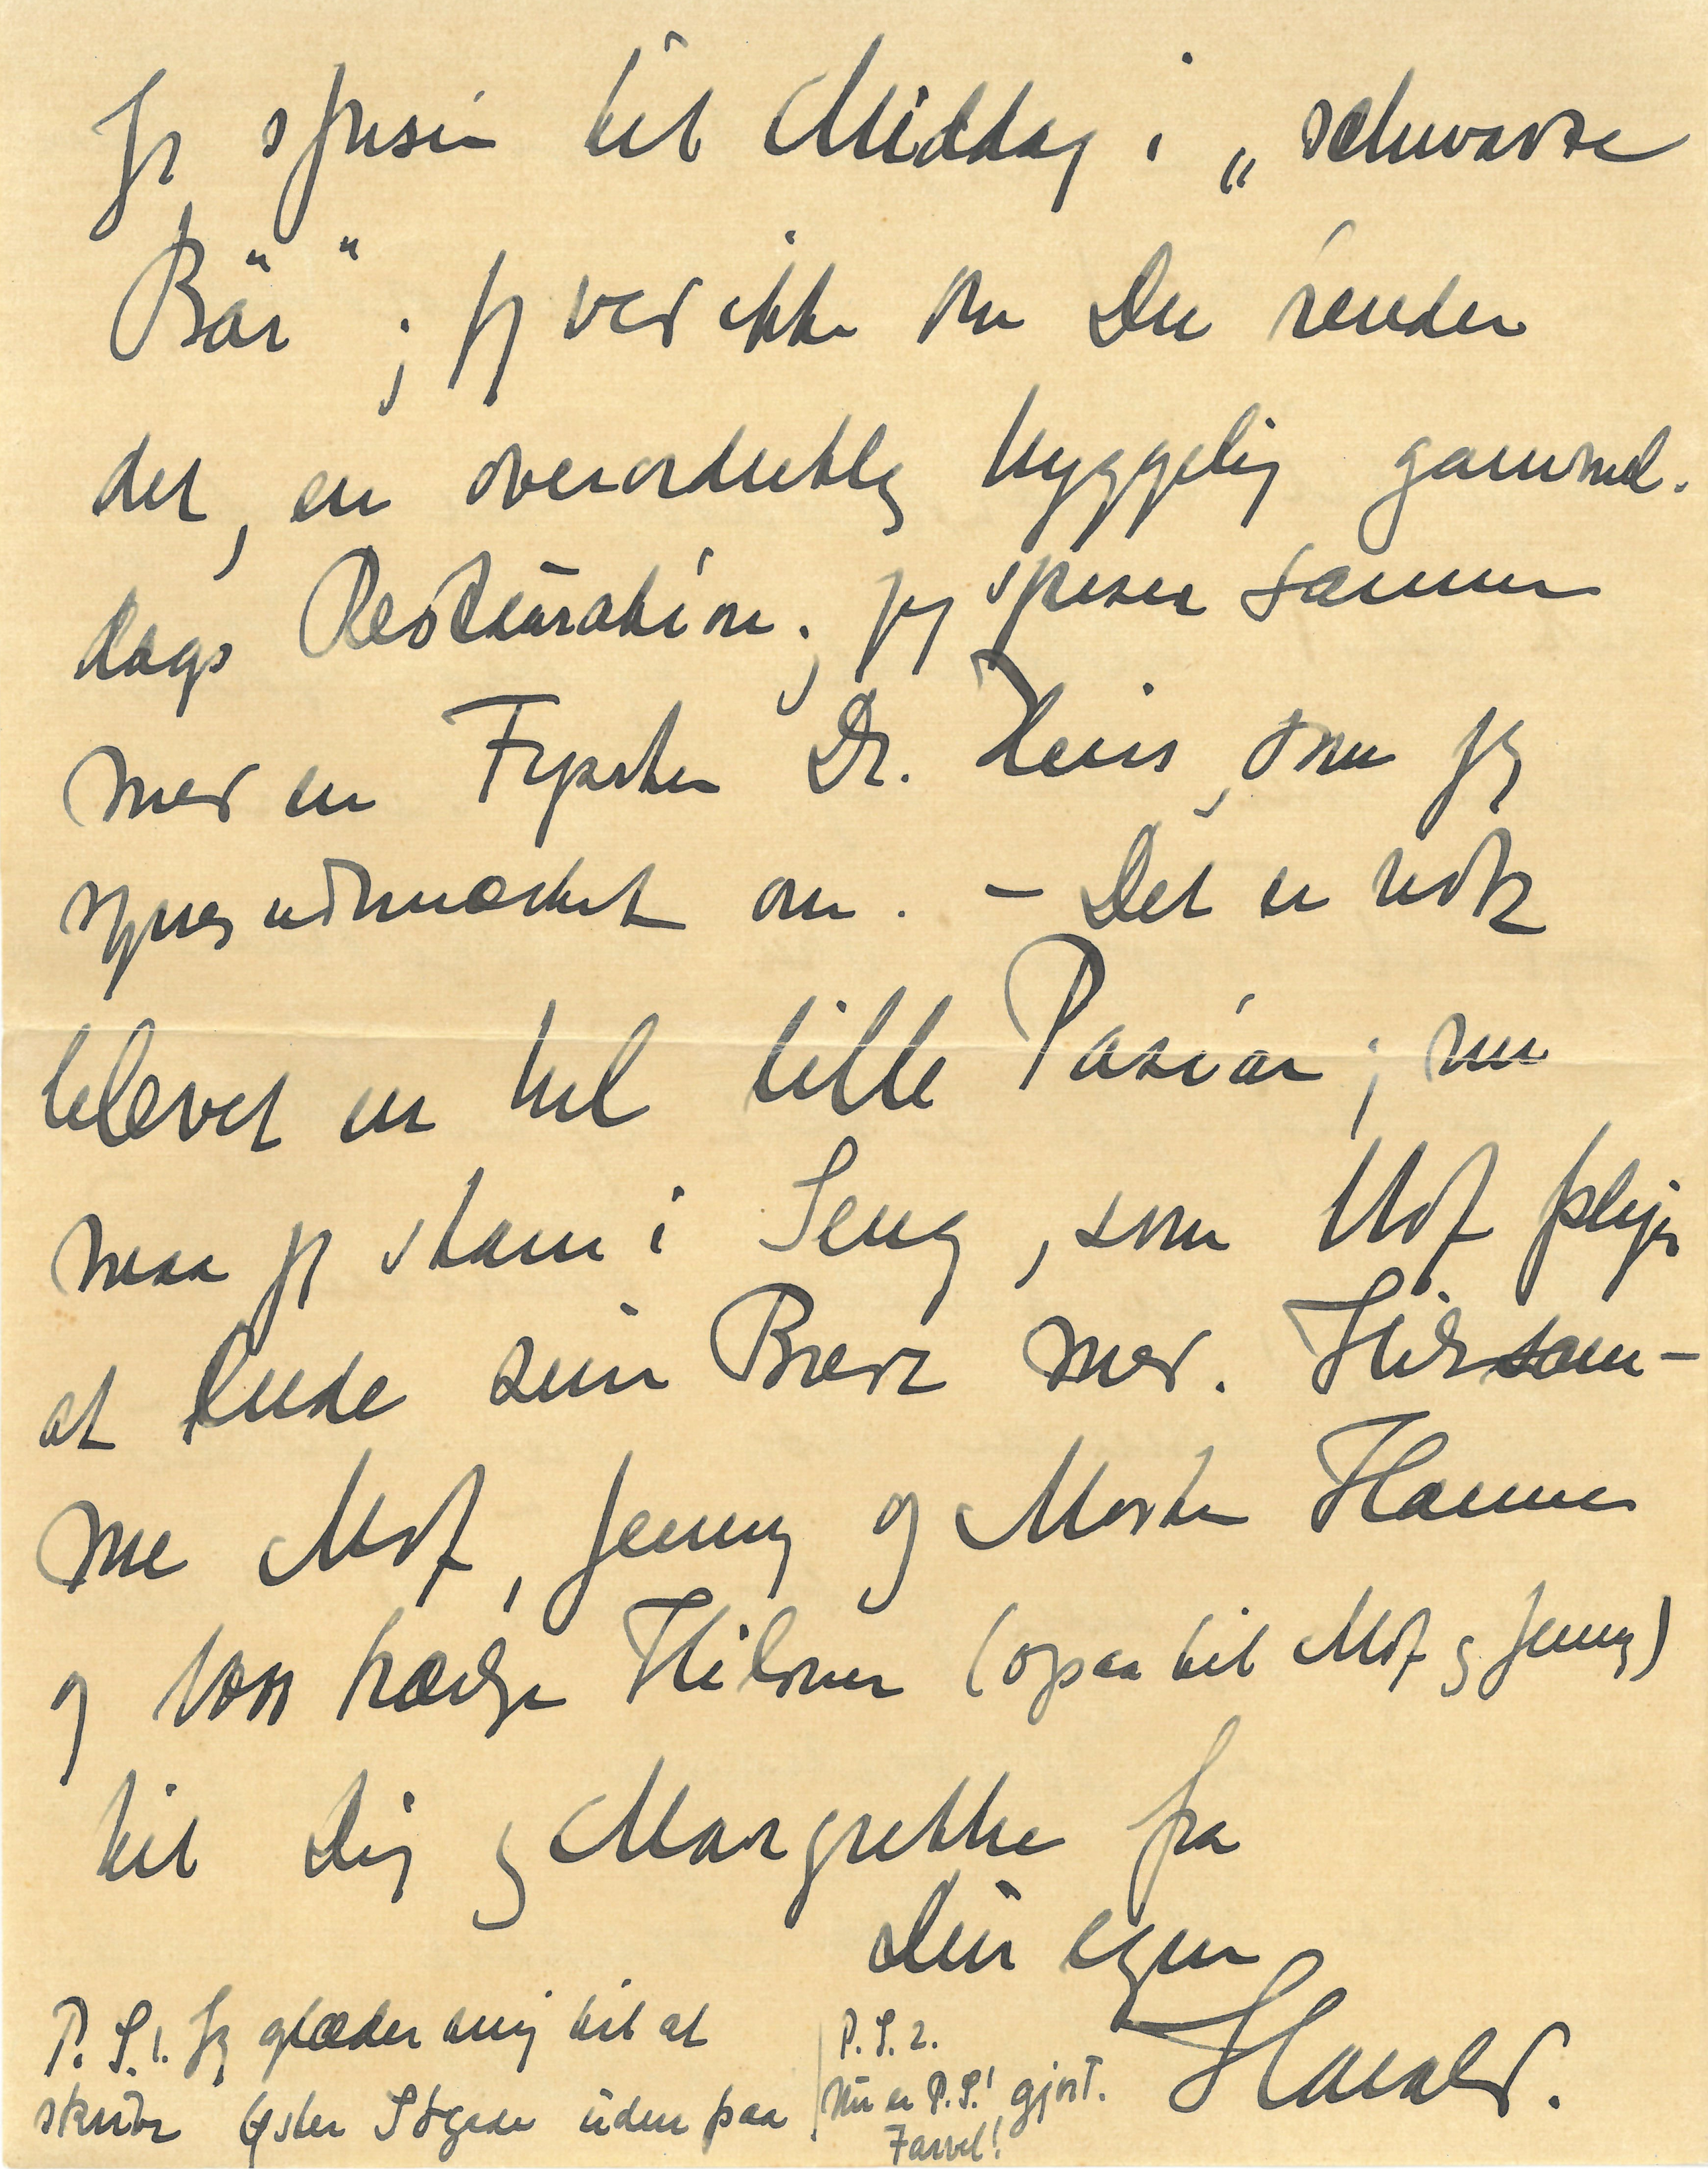 Jeg spiser til Middag i „schwarze
Bär“; jeg ved ikke om Du kender
det, en overordentlig hyggelig gammel-
dags Restauration; jeg spiser sammen
med en Fysiker Dr. , som jeg
synes udmærket om. – Det er nok
blevet en hel lille Passiar; nu
maa jeg skam i Seng, som Mof plejer
at ende sine Breve med. Hils
me Mof, Jenny og Moster Hanne
og 1000 kærlige Hilsner (ogsaa til Mof og Jenny)
til Dig og Margrethe fra
Din egen
Harald.
P. S. 1. Jeg glæder mig til at
skrive Øster Søgade uden paa
P. S. 2.
Nu er P.S.1 gjort.
Farvel!